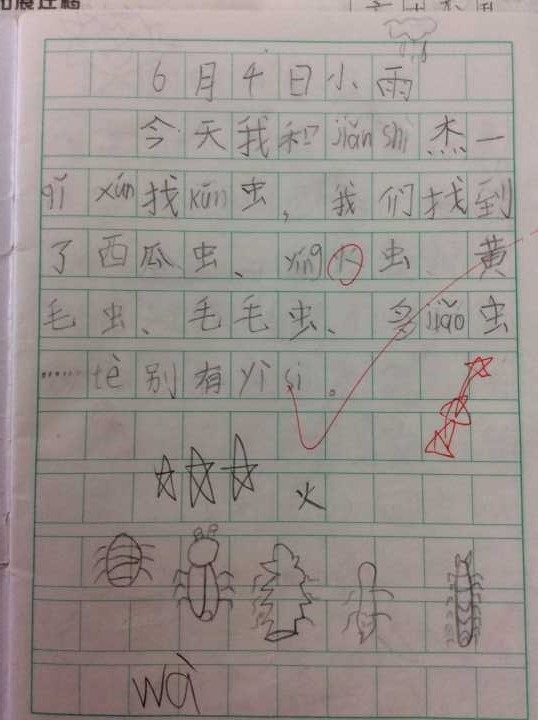 6月4日小雨
今天我和jiǎn shí杰一
qǐ xún找kūn虫，我们找到
了西瓜虫、yíng火虫、黄
毛虫、毛毛虫、多jiǎo虫
……tè别有yì si。
火
wà